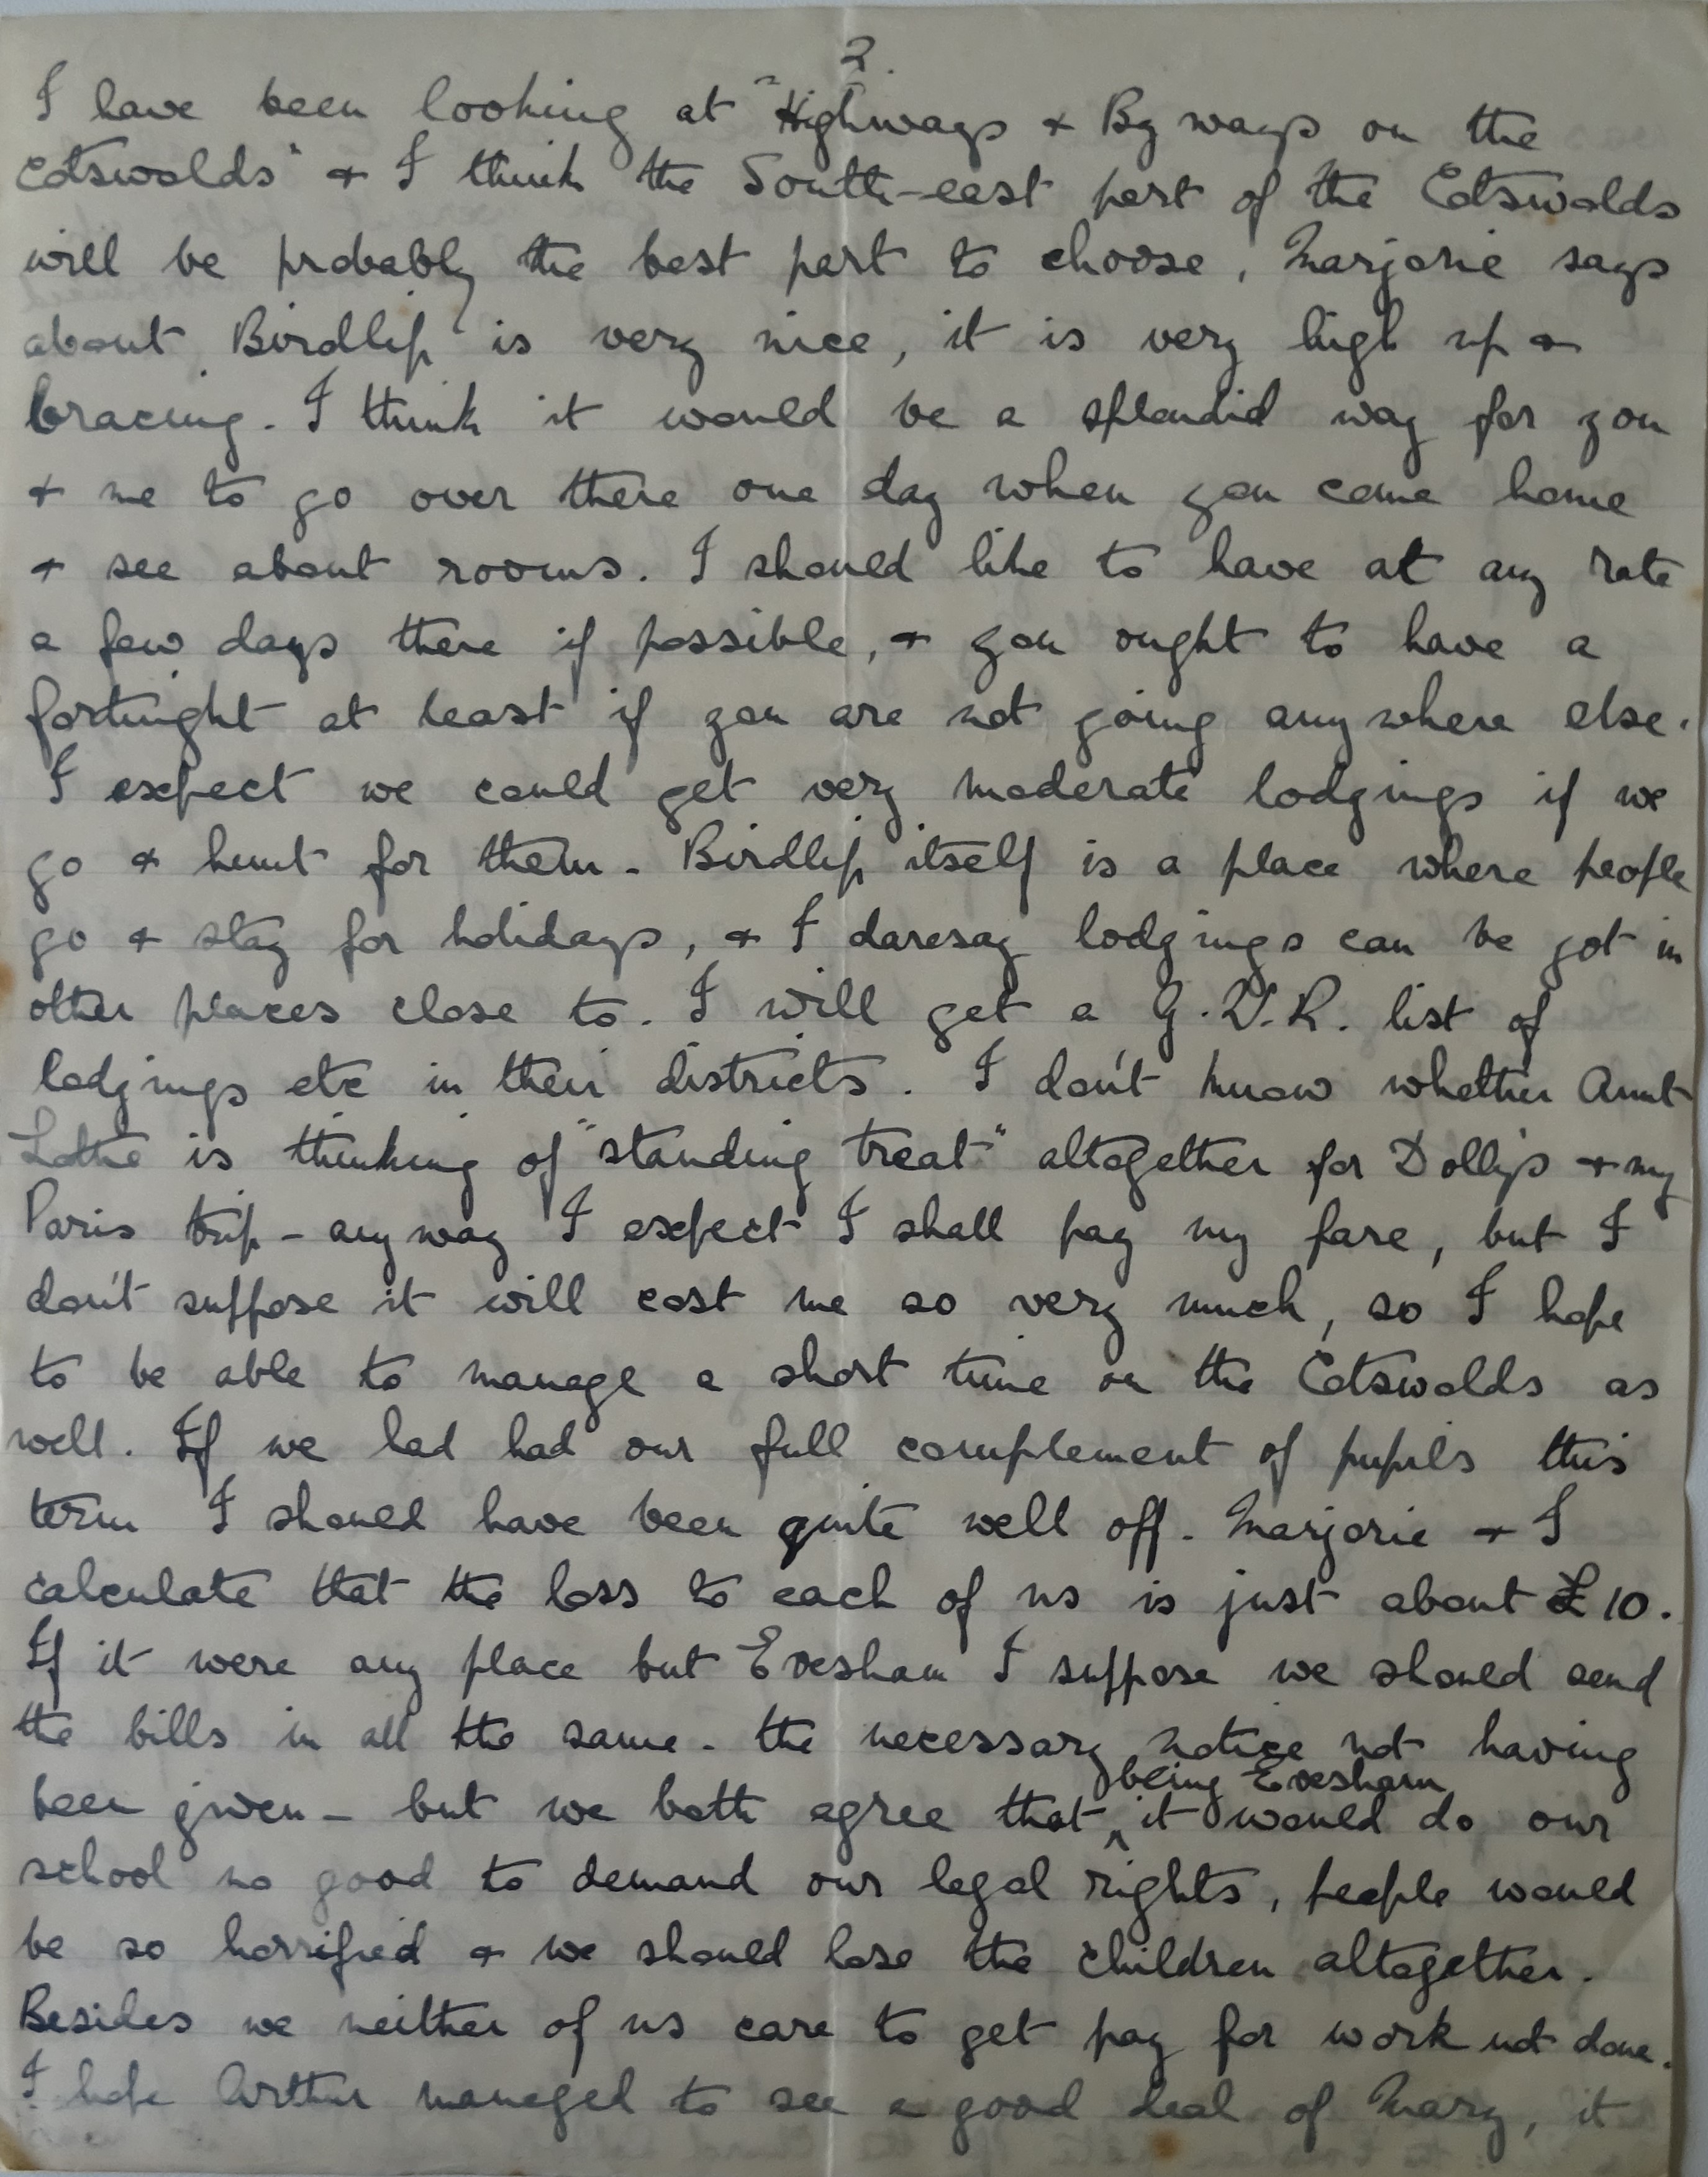 2.
I have been looking at "Highways & By ways on the
Cotswolds" & I think the South-east part of the Cotswolds
will be probably the best part to choose, Marjorie says
about Birdlip is very nice, it is very high up &
bracing. I think it would be a splendid way for you
& me to go over there one day when you come home
& see about rooms. I should like to have at any rate
a few days there if possible, & you ought to have a
fortnight at least if you are not going any where else.
I expect we could get very moderate lodgings if we
go & hunt for them - Birdlip itself is a place where people
go & stay for holidays, & I daresay lodgings can be got in
other places close to. I will get a G.W.R. list of
lodgings etc in their districts. I don't know whether Aunt
Lottie is thinking of "standing treat" altogether for Dolly's & my
Paris trip - any way I expect I shall pay my fare, but I
don't suppose it will cost me so very much, so I hope
to be able to manage a short time on the Cotswolds as
well. If we had had our full complement of pupils this
term I should have been quite well off. Marjorie & I
calculate that the loss to each of us is just about £10.
If it were any place but Evesham I suppose we should send
the bills in all the same - the necessary notice not having
being Evesham
been given - but we both agree that ^ it would do our
school no good to demand our legal rights, people would
be so horrified & we should lose the children altogether.
Besides we neither of us care to get pay for work not done.
I hope Arthur managed to see a good deal of Mary, it